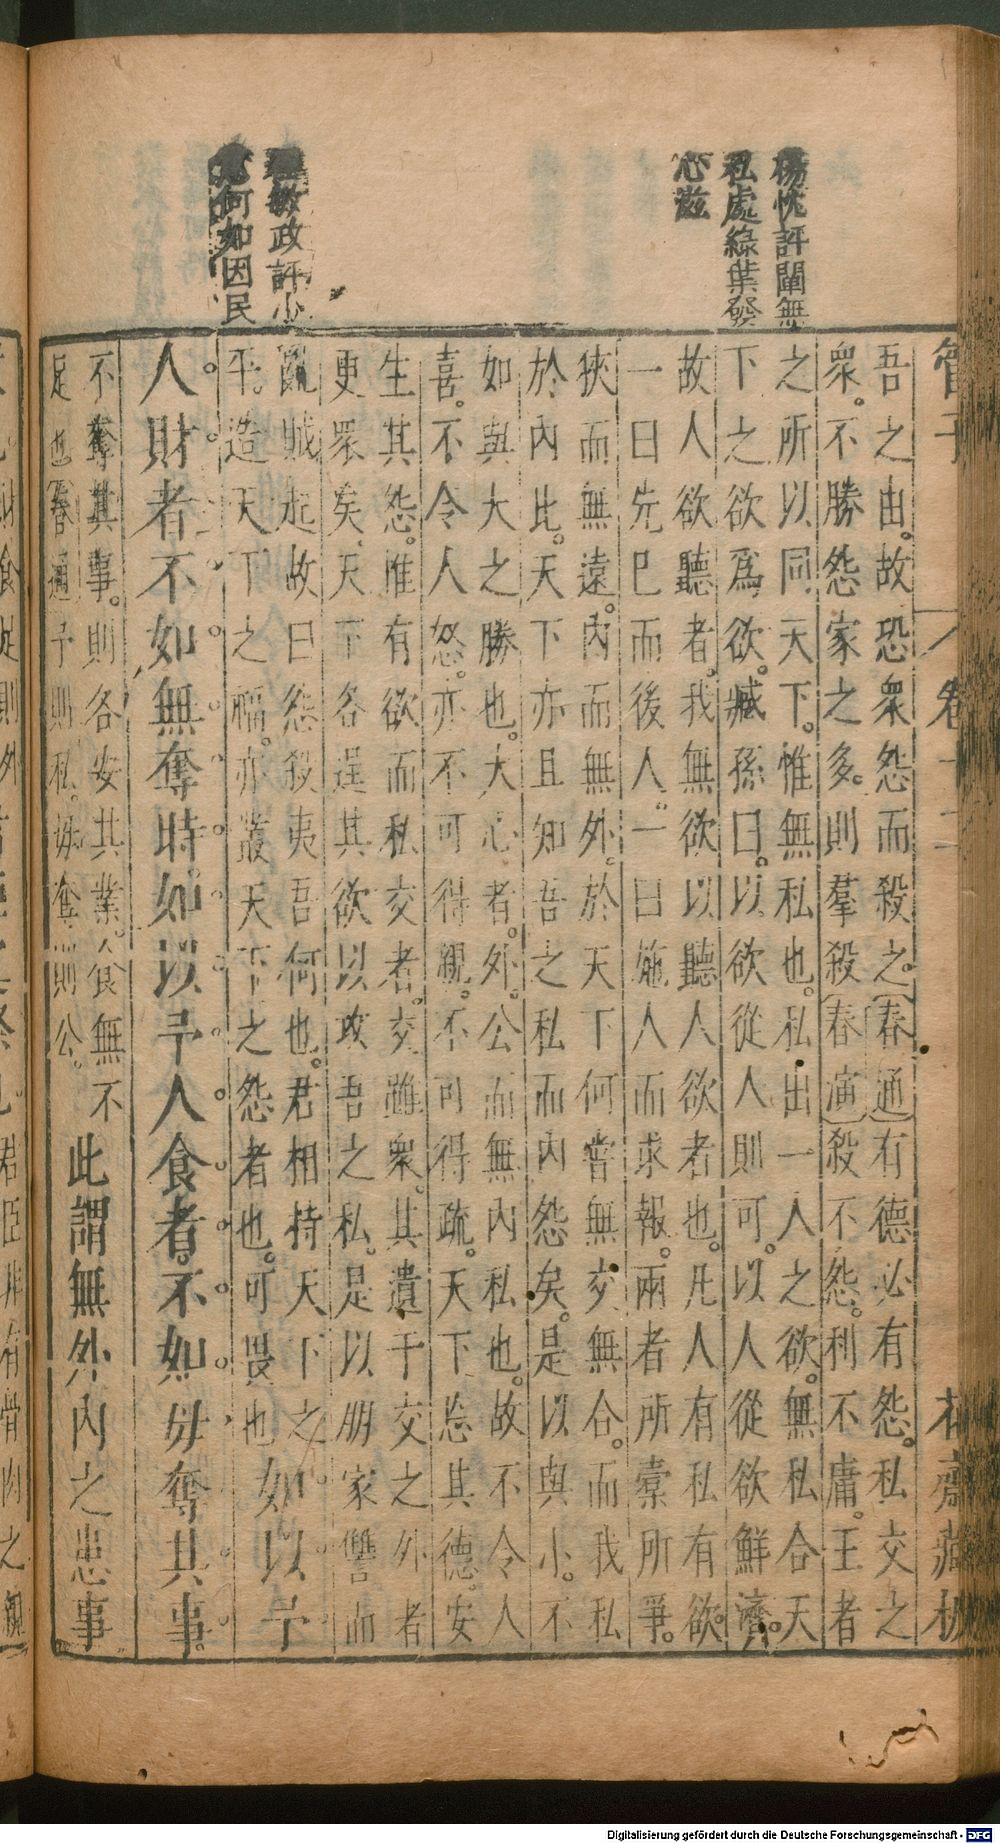 管子
卷十二
花齋藏板
楊忱評闡無
私處綠葉發
心滋
敏政評小
何如因民
吾之由。故恐衆怨而殺之。春通有德必有怨。私交之
衆。不勝怨家之多。則羣殺春演殺不怨。利不庸。王者
之所以同天下。惟無私也。私出一人之欲。無私合天
下之欲爲欲。臧孫曰。以欲從人則可。以人從欲鮮濟。
故人欲聽者。我無欲以聽人欲者也。凡人有私有欲。
一曰先已而後人。一曰施人而求報。兩者所橐所爭。
狹而無遠。內而無外。於天下何嘗無交無合。而我私
於內比。天下亦且知吾之私而內怨矣。是以與小。不
如與大之勝也。大心者。外公而無內私也。故不令人
喜。不令人怒。亦不可得親。不可得疏。天下忘其德。安
生其怨。惟有欲而私交者。交雖衆。其遺于交之外者
更衆矣。天下各逞其欲以攻吾之私。足以朋家讐而
亂賊起故曰怨殺夷吾何也。君相持天下之
平。造天下之福。亦叢天下之怨者也。可畏也如以予
人財者不如無奪時如以予人食者。不如毋奪其事。
不奪其事。則各安其業。食無不
足也春通予則私。毋奪則公。
此謂無外內之患事
Digitalisierung gefördert durch die Deutsche Forschungsgemeinschaft - DFG